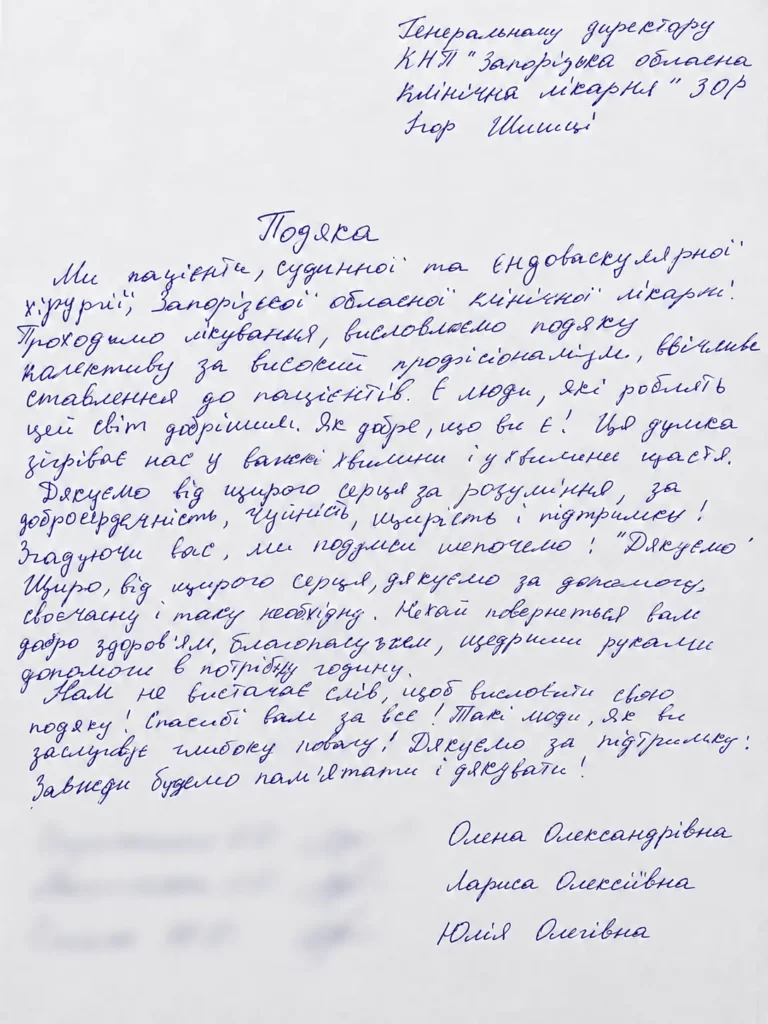 Генеральному директору
КНП "Запорізька обласна
клінічна лікарня" ЗОР
Ігор Шишці
Подяка
Ми пацієнти, судинної та ендоваскулярної
хірургії, Запорізької обласної клінічної лікарні.
Проходимо лікування, висловлюємо подяку
калективу за високий професіоналізм, ввічливе
ставлення до пацієнтів. Є люди, які роблять
цей світ добрішим. Як добре, що ви є! Ця думка
зігріває нас у важкі хвилини і у хвилини щастя.
Дякуємо від щирого серця за розуміння, за
добросердечність, чуйність, щирість і підтримку!
Згадуючи вас, ми подумки шепочемо: "Дякуємо"
Щиро, від щирого серця, дякуємо за допомогу,
своєчасну і таку необхідну. Нехай повернеться вам
добро здоров'ям, благополуччям, щедрими руками
допомоги в потрібну годину.
Нам не вистачає слів, щоб висловити свою
подяку! Спасибі вам за все! Такі люди, як ви
заслуговує глибоку повагу! Дякуємо за підтримку!
Завжди будемо пам'ятати і дякувати!
Олена Олександрівна
Лариса Олексіївна
Юлія Олегівна